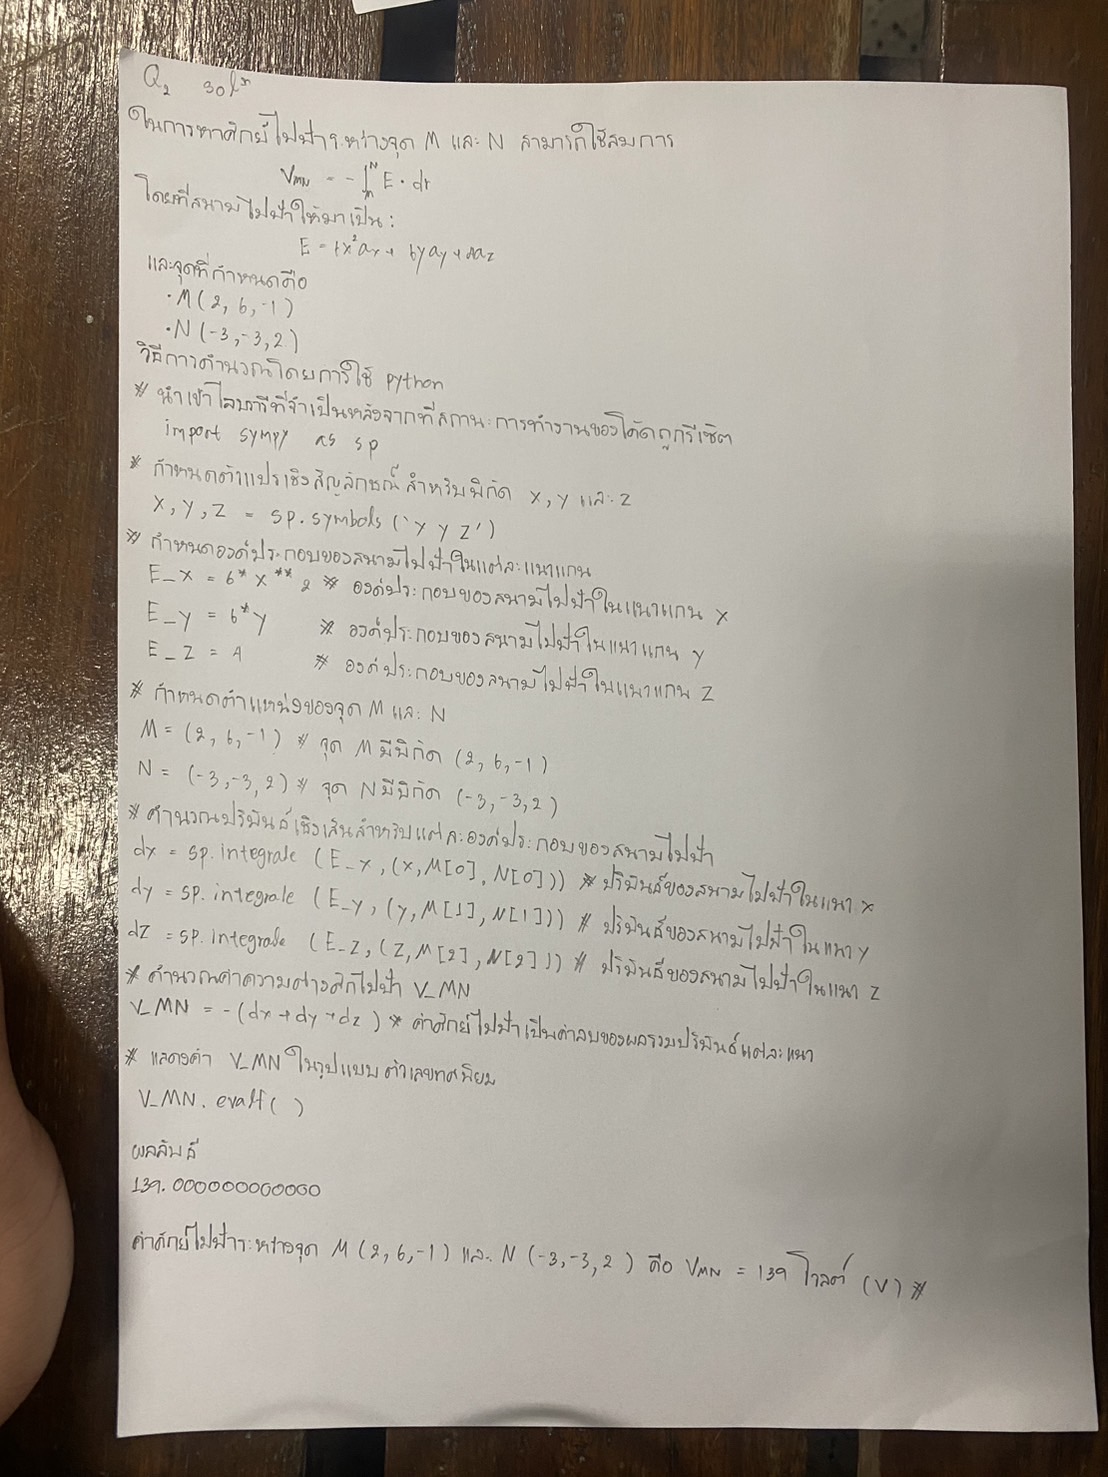 Q2 sol^n
ในการหาศักย์ไฟฟ้าระหว่างจุด M และ N สามารถใช้สมการ
V_MN = -∫_m^N E · dr
โดยที่สนามไฟฟ้าให้มาเป็น:
E = 6x²ax + 6yay + 4az
และจุดที่กำหนดคือ
· M(2, 6, -1)
· N(-3, -3, 2)
วิธีการคำนวณโดยการใช้ python
# นำเข้าไลบรารีที่จำเป็นหลังจากที่สถานะการทำงานของโค้ดถูกรีเซ็ต
import sympy as sp
# กำหนดตัวแปรเชิงสัญลักษณ์สำหรับพิกัด x, y และ z
x, y, z = sp.symbols('y y z')
# กำหนดองค์ประกอบของสนามไฟฟ้าในแต่ละแนวแกน
E_x = 6*x**2 # องค์ประกอบของสนามไฟฟ้าในแนวแกน x
E_y = 6*y # องค์ประกอบของสนามไฟฟ้าในแนวแกน y
E_z = 4 # องค์ประกอบของสนามไฟฟ้าในแนวแกน z
# กำหนดตำแหน่งของจุด M และ N
M = (2, 6, -1) # จุด M มีพิกัด (2, 6, -1)
N = (-3, -3, 2) # จุด N มีพิกัด (-3, -3, 2)
# คำนวณปริพันธ์เชิงเส้นสำหรับแต่ละองค์ประกอบของสนามไฟฟ้า
dx = sp.integrate (E_x, (x, M[0], N[0])) # ปริพันธ์ของสนามไฟฟ้าในแนว x
dy = sp.integrate (E_y, (y, M[1], N[1])) # ปริพันธ์ของสนามไฟฟ้าในแนว y
dz = sp.integrate (E_z, (z, M[2], N[2])) # ปริพันธ์ของสนามไฟฟ้าในแนว z
# คำนวณค่าความต่างศักไฟฟ้า V_MN
V_MN = -(dx + dy + dz) # ค่าศักย์ไฟฟ้าเป็นค่าลบของผลรวมปริพันธ์แต่ละแนว
# แสดงค่า V_MN ในรูปแบบตัวเลขทศนิยม
V_MN.evalf( )
ผลลัพธ์
139.000000000000
ค่าศักย์ไฟฟ้าระหว่างจุด M (2, 6, -1) และ N (-3, -3, 2) คือ V_MN = 139 โวลต์ (V) #